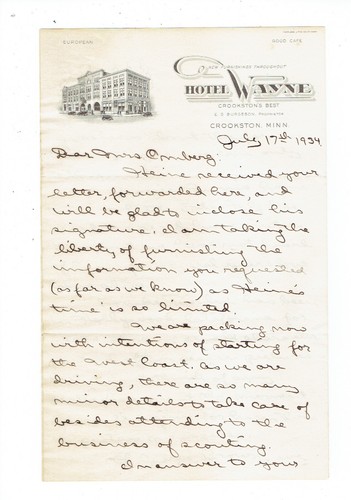 EUROPEAN
GOOD CAFE
NEW FURNISHINGS THROUGHOUT
HOTEL WAYNE
CROOKSTON'S BEST
CROOKSTON, MINN.
July 17th, 1934
Dear Mrs Ornberg:
Heinie received your
letter, forwarded here, and
will be glad to inclose his
signature. I am taking the
liberty of furnishing the
information you requested
(as far as we know) as Heinie's
time is so limited.
We are packing now
with intentions of starting for
the West Coast. As we are
driving, there are so many
minor details to take care of
besides attending to the
business of scouting.
In answer to your